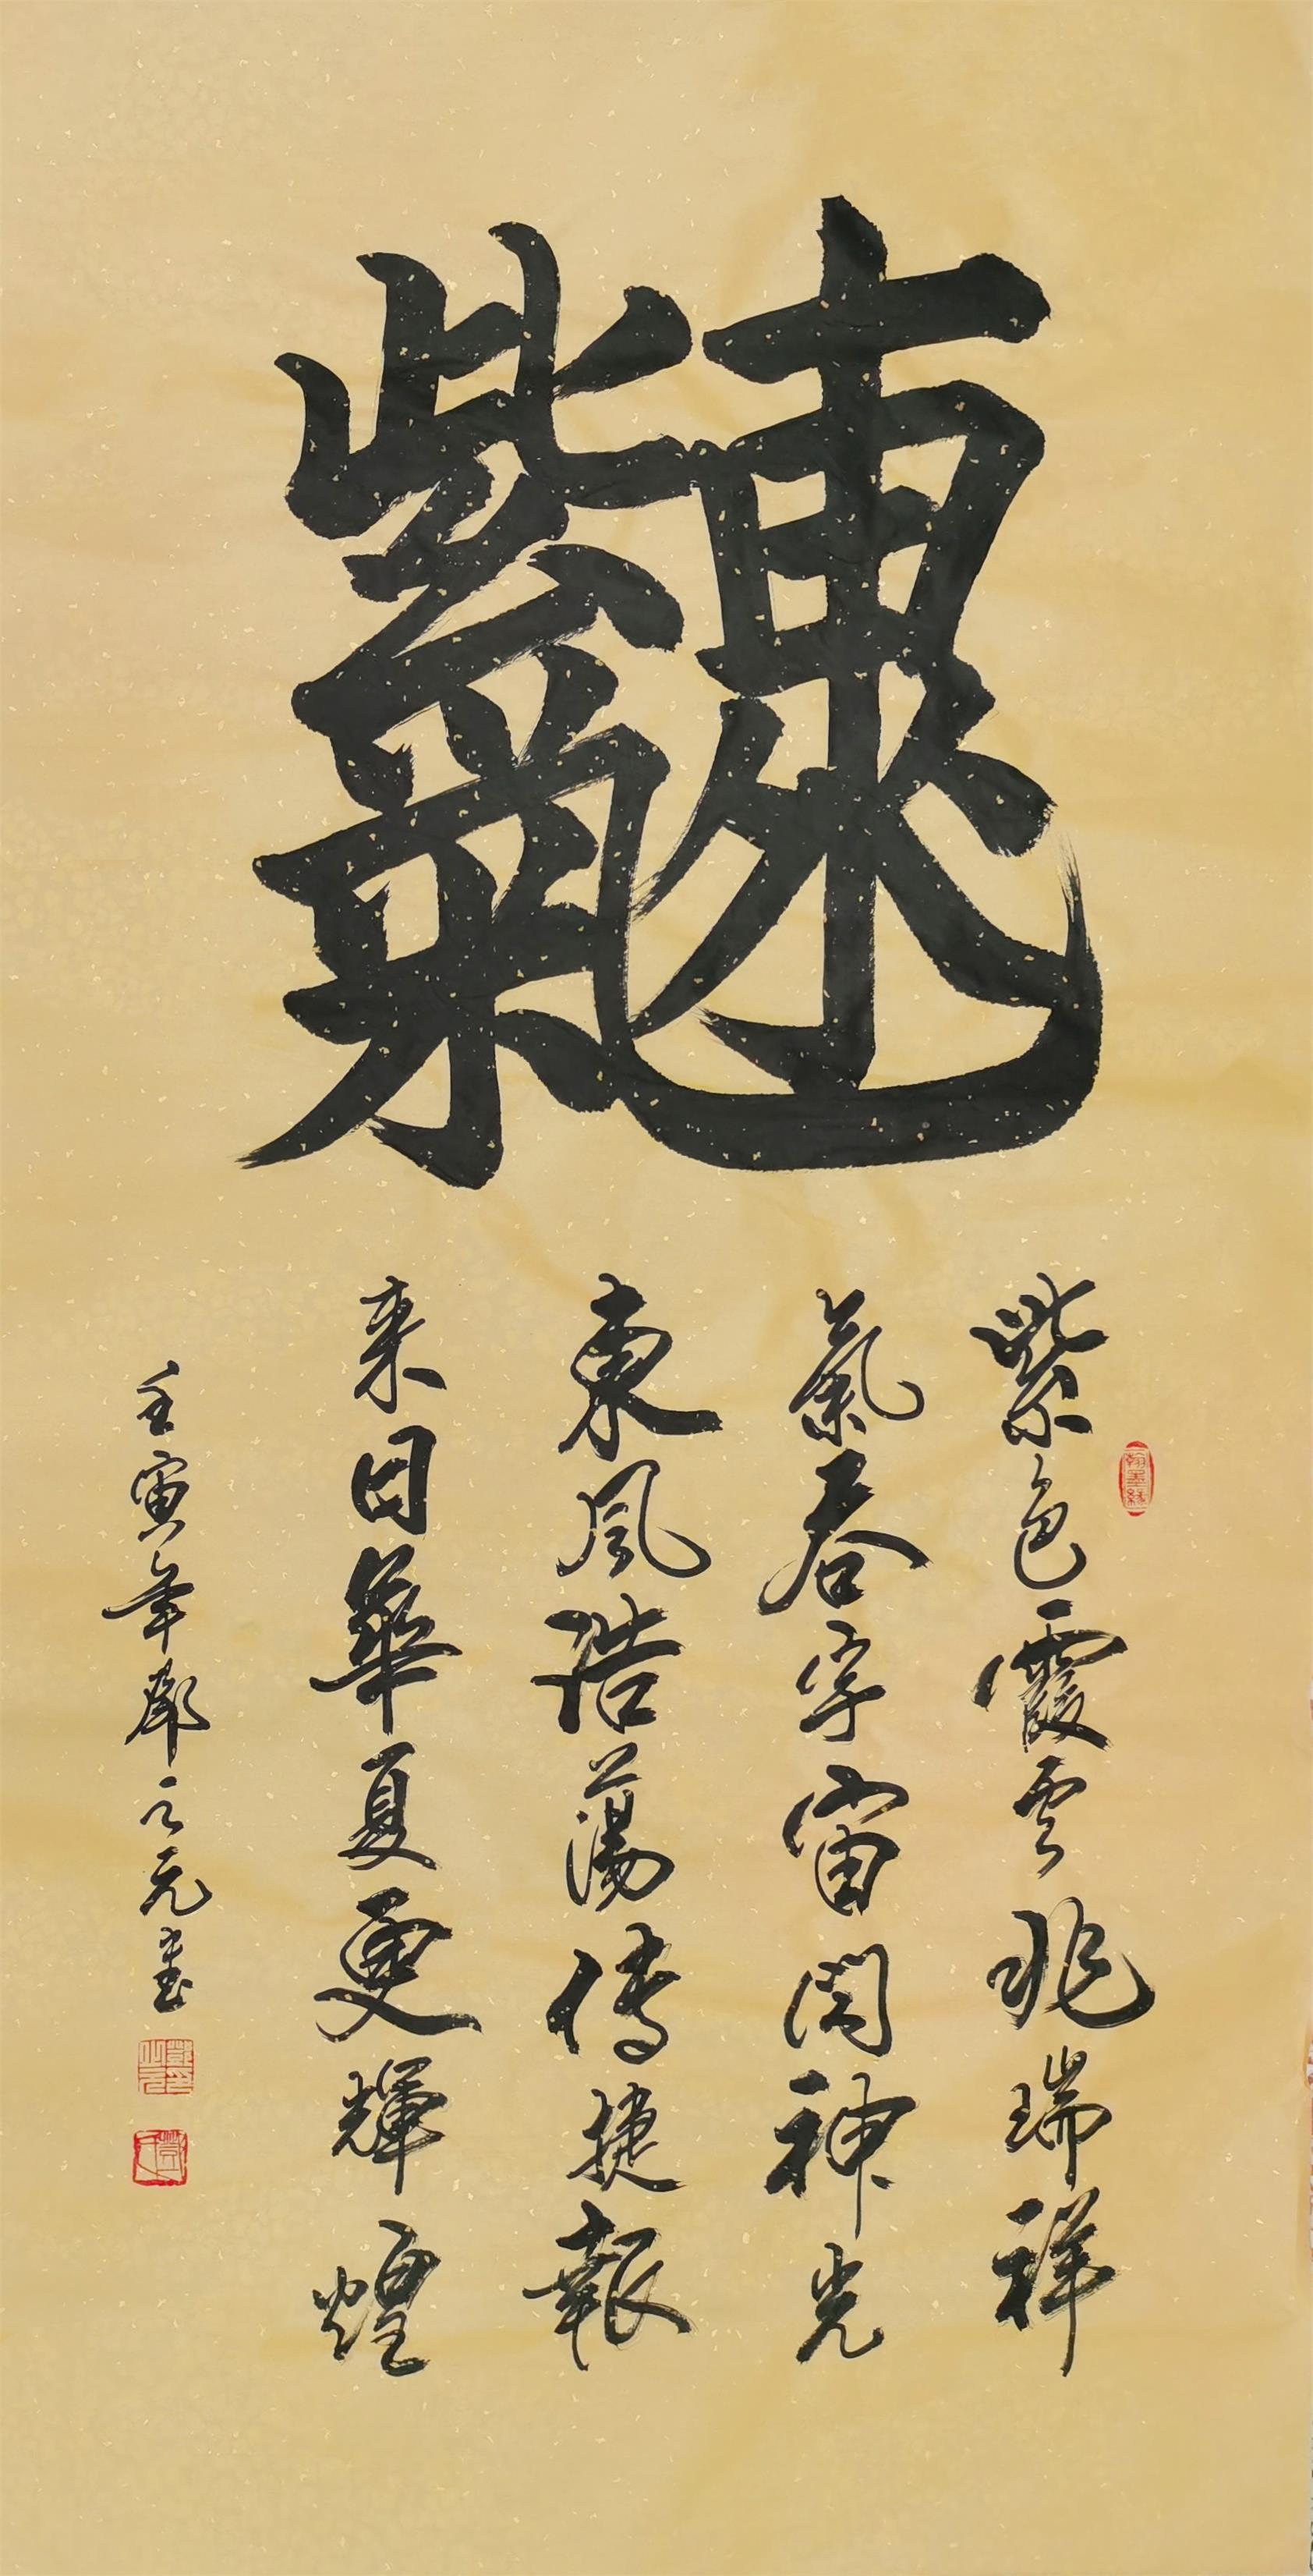 紫氣東來
翰墨緣
紫色霞雲兆瑞祥
氣吞宇宙閃神光
東風浩蕩傳捷報
来日華夏更輝煌
壬寅年鄧之元書